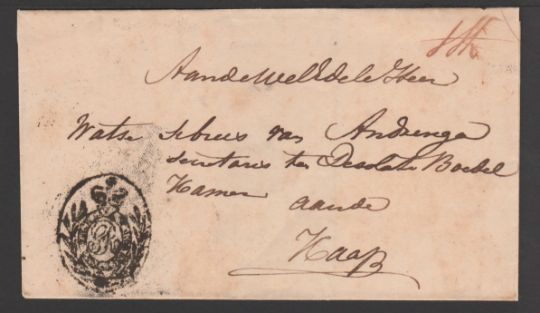 Aan de WelEdele Heer
Watse Sibius van Andringa
Secretaris ter Desolate Boedel
Kamer aande
Kaap